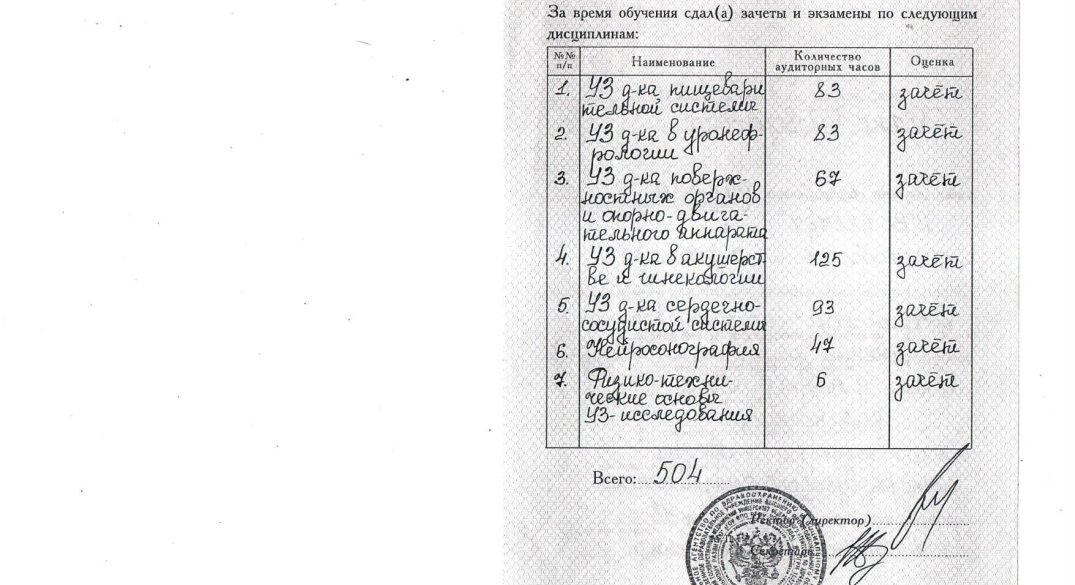 За время обучения сдал(а) зачеты и экзамены по следующим
дисциплинам:
№№ п/п Наименование Количество аудиторных часов Оценка
1. УЗ д-ка пищевари 83 зачёт
тельной системы
2. УЗ д-ка в уронеф- 83 зачёт
рологии
3. УЗ д-ка поверх- 67 зачёт
ностных органов
и опорно-двига-
тельного аппарата
4. УЗ д-ка в акушерст 125 зачёт
ве и гинекологии
5. УЗ д-ка сердечно- 93 зачёт
сосудистой системы
6. Нейросонография 47 зачёт
7. Физико-техни- 6 зачёт
ческие основы
УЗ-исследования
Всего: 504
Ректор (директор)
Секретарь